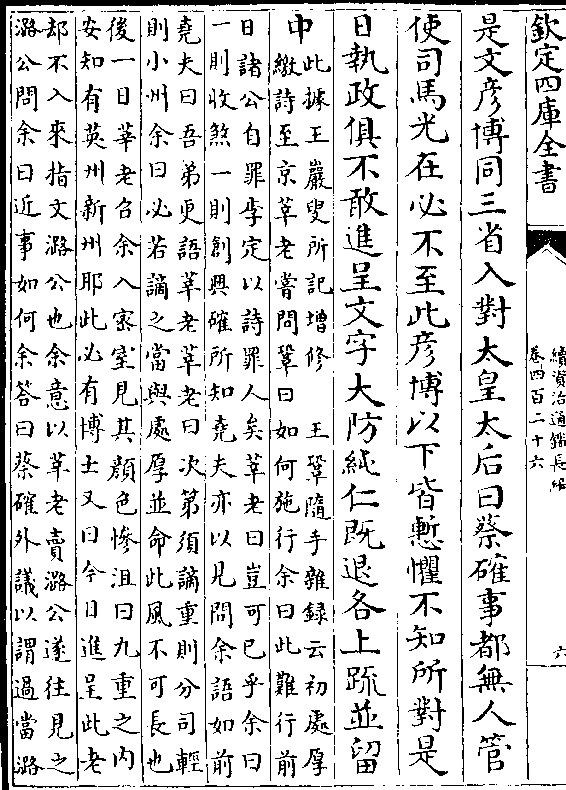 欽定四庫全書
續資治通鑑長編
卷四百二十六
六
是文彦博同三省入對太皇太后曰蔡確事都無人管
使司馬光在必不至此彦博以下皆慙懼不知所對是
日執政俱不敢進呈文字大防純仁既退各上疏並留
中此據王巖叟所記增修　王鞏隨手雜録云初處厚
繳詩至京莘老嘗問鞏曰如何施行余曰此難行前
日諸公自罪李定以詩罪人矣莘老曰豈可已乎余曰
一則收煞一則創興確所知堯夫亦以見問余語如前
堯夫曰吾弟更語莘老莘老曰次第須謫重則分司輕
則小州余曰必若謫之當與處厚並命此風不可長也
後一日莘老召余入密室見其顔色慘沮曰九重之内
安知有英州新州耶此必有博士又曰今日進呈此老
却不入來指文潞公也余意以莘老賣潞公遂往見之
潞公問余曰近事如何余答曰蔡確外議以謂過當潞